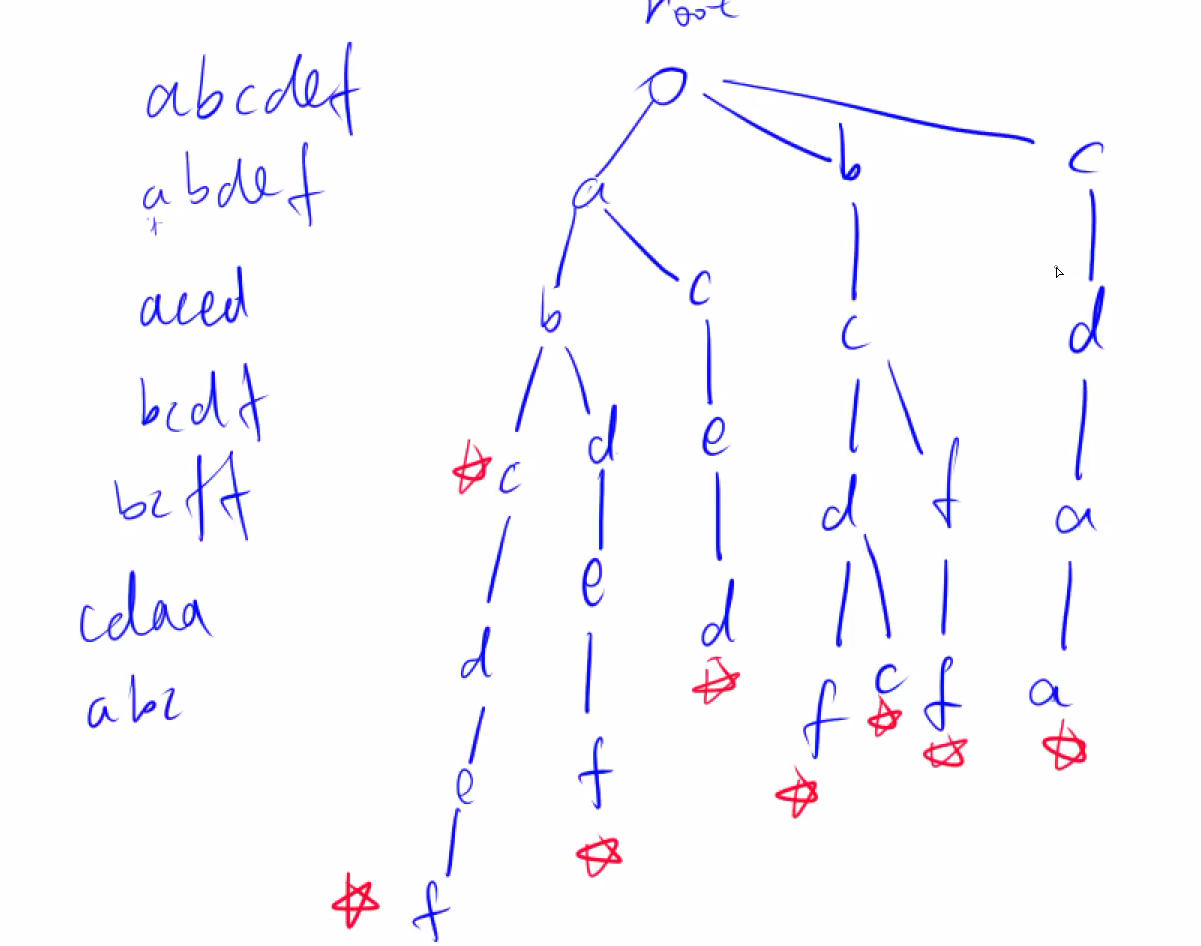 root
abcdef
abdef
aced
bcdf
bcff
cdaa
abc
a b c
b c c d
c d e d f a
d e d f c f a
e f
f